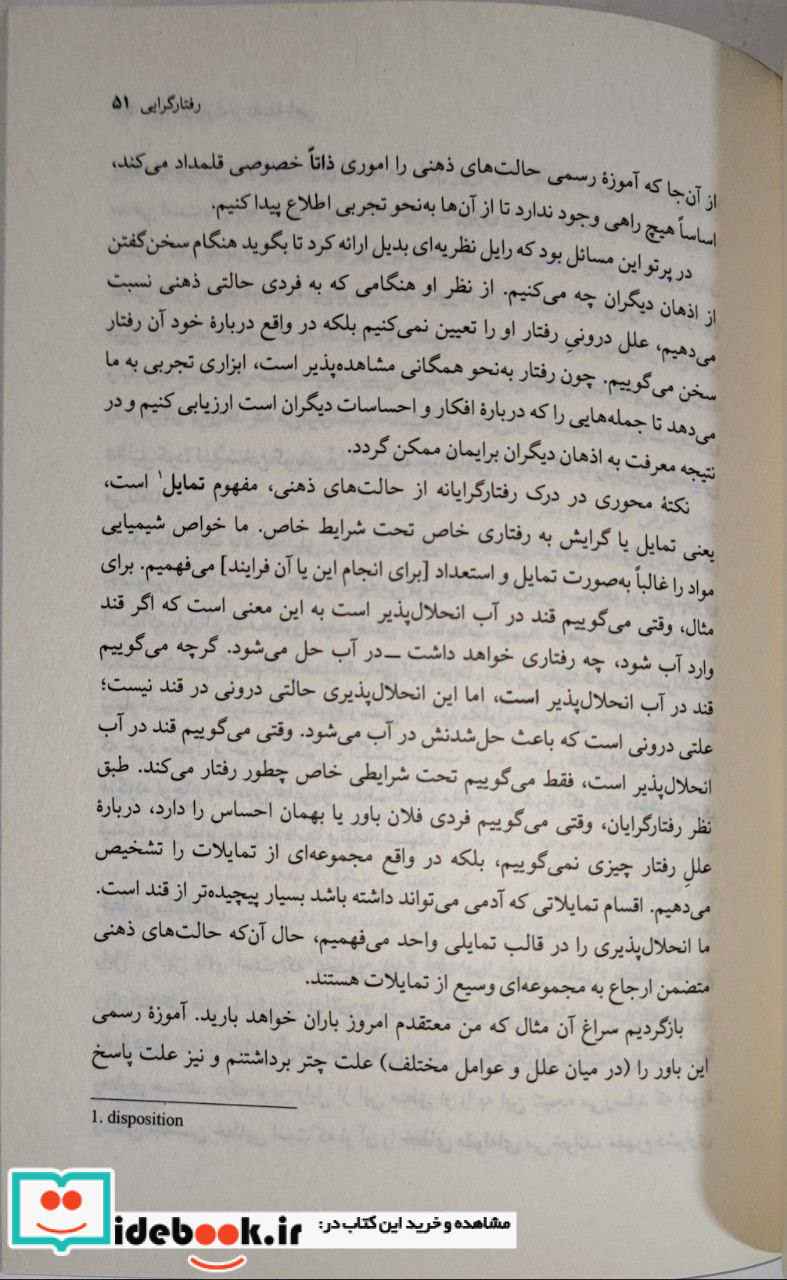 رفتارگرایی ۵۱
از آن‌جا که آموزهٔ رسمی حالت‌های ذهنی را اموری ذاتاً خصوصی قلمداد می‌کند،
اساساً هیچ راهی وجود ندارد تا از آن‌ها به‌نحو تجربی اطلاع پیدا کنیم.
در پرتو این مسائل بود که رایل نظریه‌ای بدیل ارائه کرد تا بگوید هنگام سخن‌گفتن
از اذهان دیگران چه می‌کنیم. از نظر او هنگامی که به فردی حالتی ذهنی نسبت
می‌دهیم، علل درونیِ رفتار او را تعیین نمی‌کنیم بلکه در واقع دربارهٔ خود آن رفتار
سخن می‌گوییم. چون رفتار به‌نحو همگانی مشاهده‌پذیر است، ابزاری تجربی به ما
می‌دهد تا جمله‌هایی را که دربارهٔ افکار و احساسات دیگران است ارزیابی کنیم و در
نتیجه معرفت به اذهان دیگران برایمان ممکن گردد.
نکتهٔ محوری در درک رفتارگرایانه از حالت‌های ذهنی، مفهوم تمایل۱ است،
یعنی تمایل یا گرایش به رفتاری خاص تحت شرایط خاص. ما خواص شیمیایی
مواد را غالباً به‌صورت تمایل و استعداد [برای انجام این یا آن فرایند] می‌فهمیم. برای
مثال، وقتی می‌گوییم قند در آب انحلال‌پذیر است به این معنی است که اگر قند
وارد آب شود، چه رفتاری خواهد داشت ــ در آب حل می‌شود. گرچه می‌گوییم
قند در آب انحلال‌پذیر است، اما این انحلال‌پذیری حالتی درونی در قند نیست؛
علتی درونی است که باعث حل‌شدنش در آب می‌شود. وقتی می‌گوییم قند در آب
انحلال‌پذیر است، فقط می‌گوییم تحت شرایطی خاص چطور رفتار می‌کند. طبق
نظر رفتارگرایان، وقتی می‌گوییم فردی فلان باور یا بهمان احساس را دارد، دربارهٔ
عللِ رفتار چیزی نمی‌گوییم، بلکه در واقع مجموعه‌ای از تمایلات را تشخیص
می‌دهیم. اقسام تمایلاتی که آدمی می‌تواند داشته باشد بسیار پیچیده‌تر از قند است.
ما انحلال‌پذیری را در قالب تمایلی واحد می‌فهمیم، حال آن‌که حالت‌های ذهنی
متضمن ارجاع به مجموعه‌ای وسیع از تمایلات هستند.
بازگردیم سراغ آن مثال که من معتقدم امروز باران خواهد بارید. آموزهٔ رسمی
این باور را (در میان علل و عوامل مختلف) علت چتر برداشتنم و نیز علت پاسخ
1. disposition
مشاهده و خرید این کتاب در:
idebook.ir